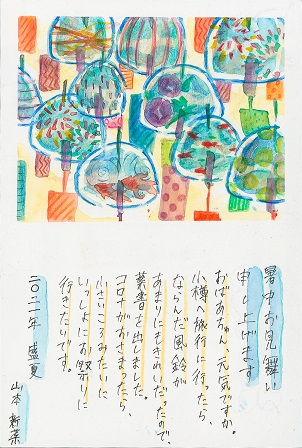 暑中お見舞い
申し上げます
おばあちゃん、元気ですか。
小樽へ旅行に行ったら、
ならんだ風鈴が
あまりにもきれいだったので
葉書を出しました。
コロナがおさまったら、
小さいころみたいに
いっしょにお祭りに
行きたいです。
二〇二一年 盛夏
山本 新菜